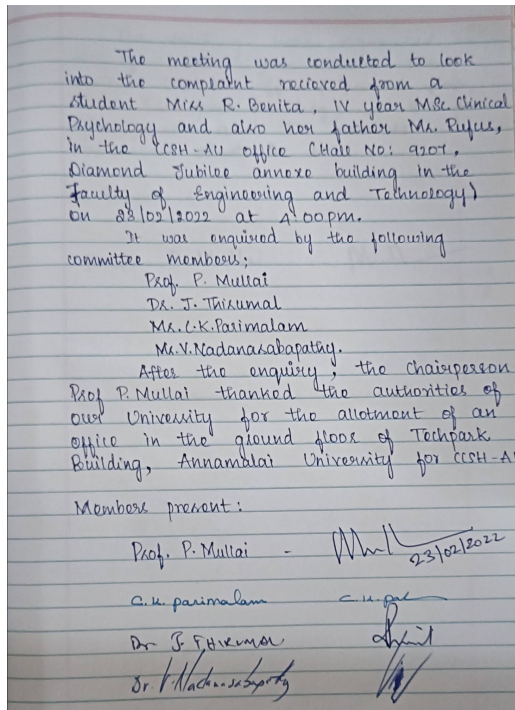 The meeting was conducted to look
into the complaint recieved from a
student Miss R. Benita, IV year M.Sc. Clinical
Psychology and also her father Mr. Rufus,
in the CCSH-AU office (Hall No: 9207,
Diamond Jubilee annexe building in the
Faculty of Engineering and Technology)
on 23/02/2022 at 4.00pm.
It was enquired by the following
committee members;
Prof. P. Mullai
Dr. J. Thirumal
Mr. C.K. Parimalam
Mr. V. Nadanasabapathy.
After the enquiry, the chairperson
Prof P. Mullai thanked the authorities of
our University for the allotment of an
office in the ground floor of Techpark
Building, Annamalai University for CCSH-A
Members present:
Prof. P. Mullai -
23/02/2022
C.K. parimalam
Dr J. THIRUMAL
Dr. V. Nadanasabapathy